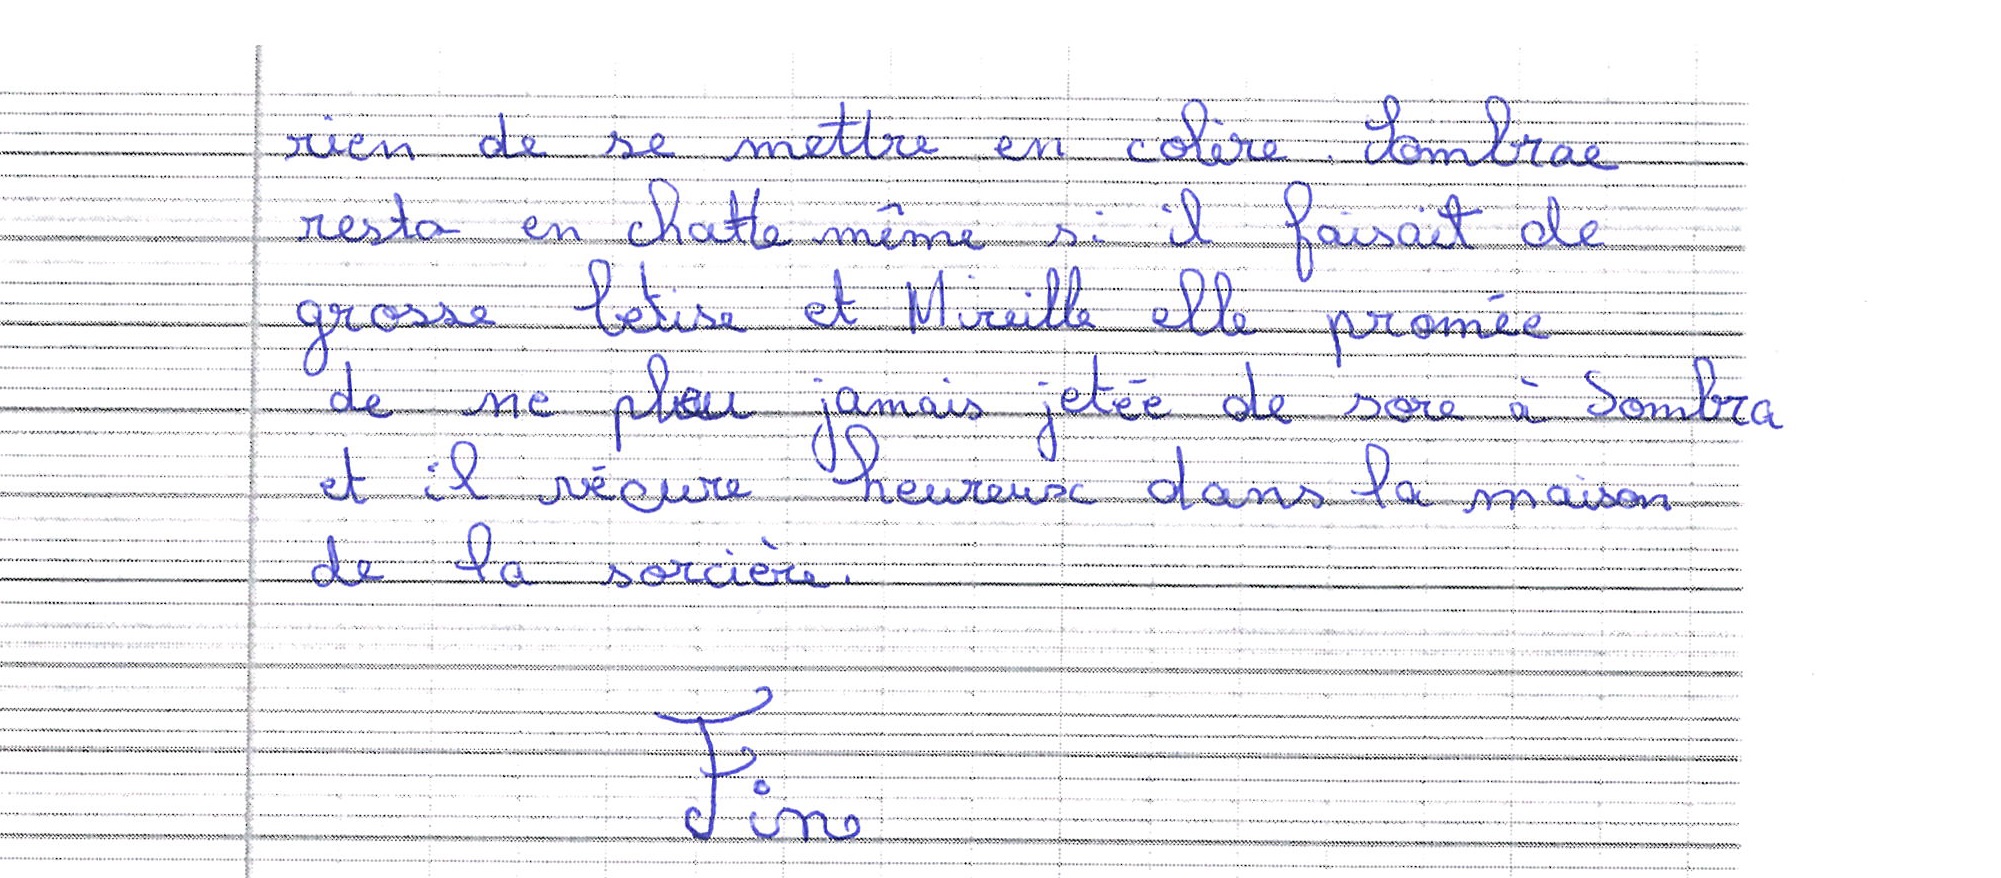 rien de se mettre en colère. Sombrae
resta en chatte même si il faisait de
grosse betise et Mireille elle promée
de ne plu jamais jetée de sore à Sombra
et il vécure heureusc dans la maison
de la sorcière.
Fin